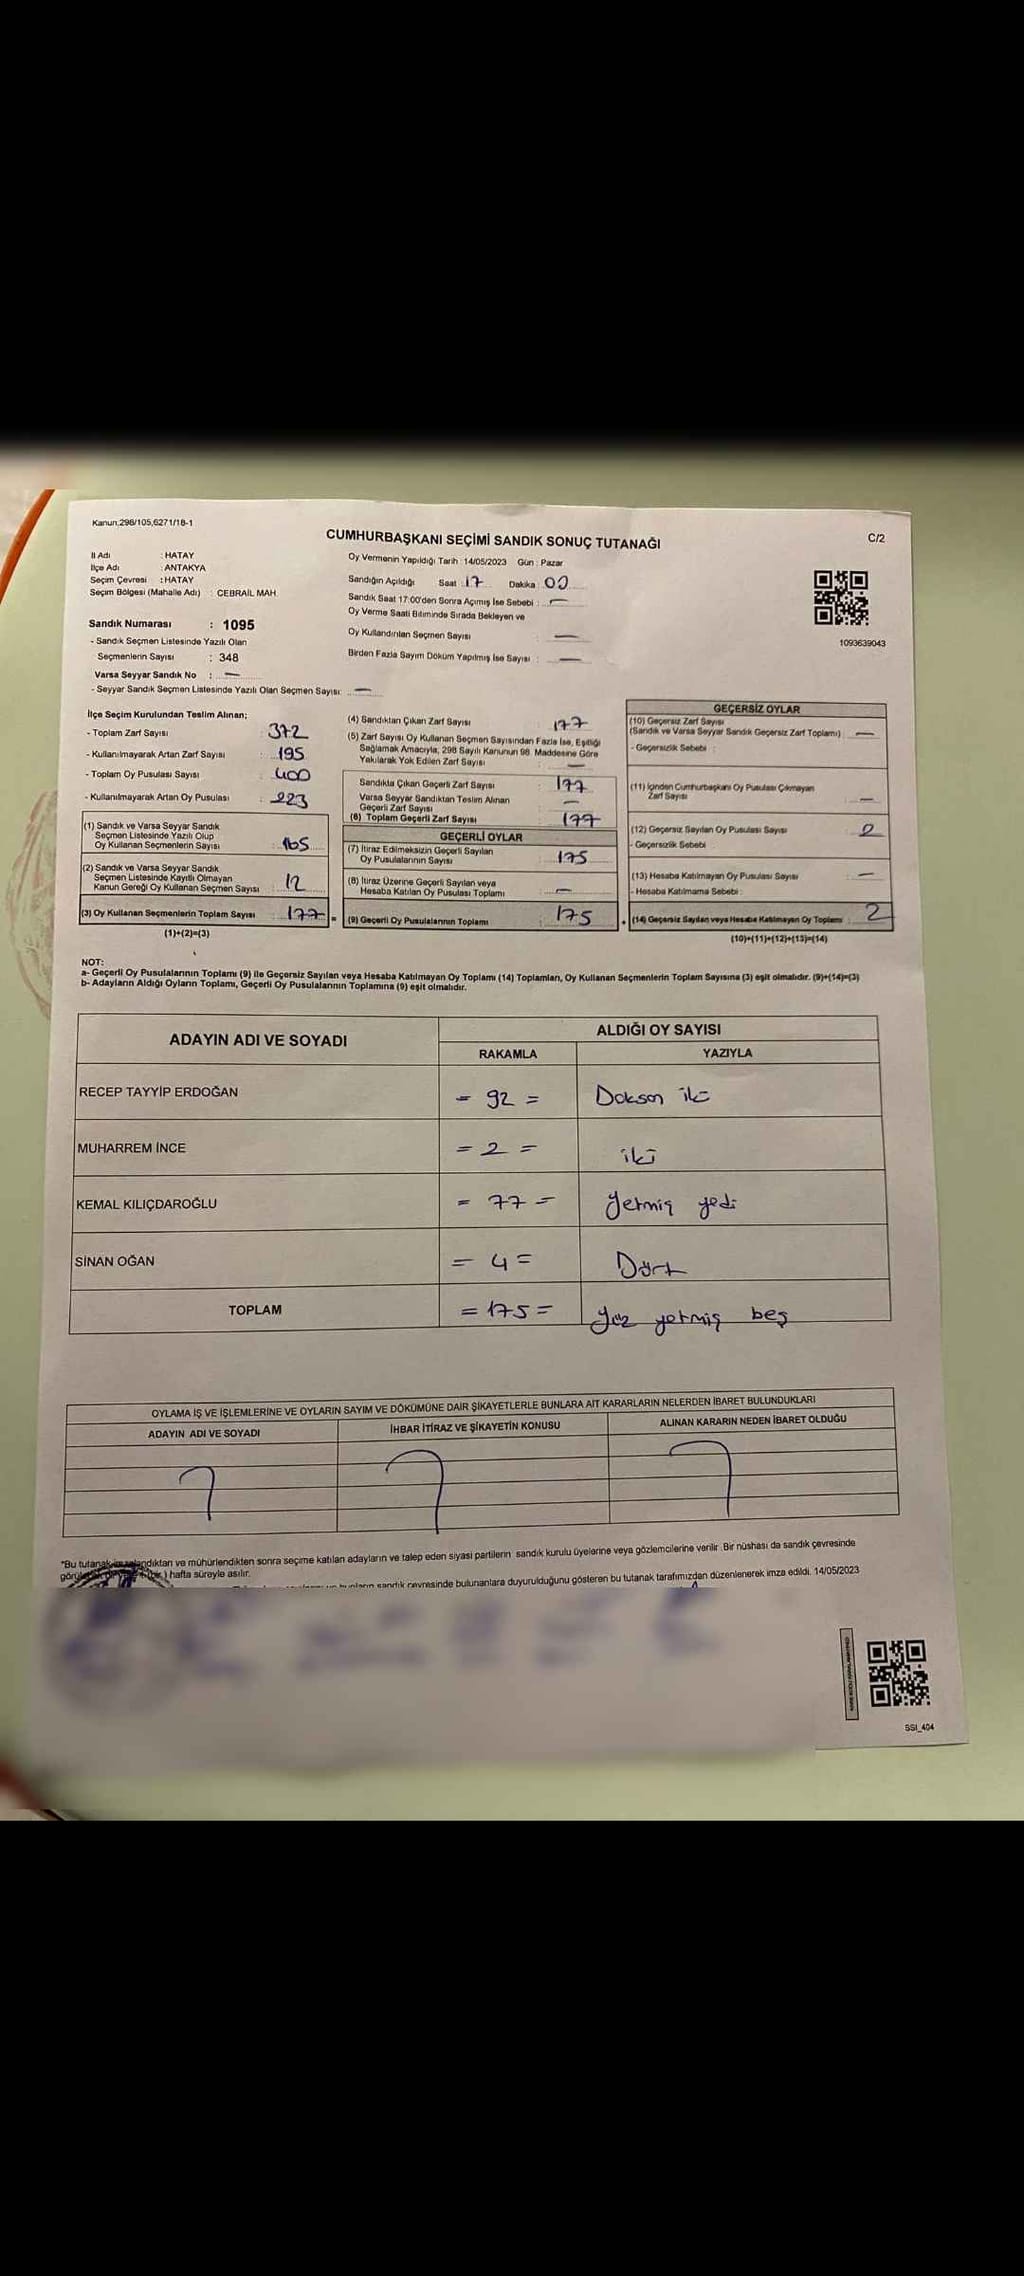 Kanun,298/105,6271/18-1
CUMHURBAŞKANI SEÇİMİ SANDIK SONUÇ TUTANAĞI
C/2
İl Adı : HATAY
İlçe Adı : ANTAKYA
Seçim Çevresi : HATAY
Seçim Bölgesi (Mahalle Adı) : CEBRAİL MAH.
Sandık Numarası : 1095
- Sandık Seçmen Listesinde Yazılı Olan
Seçmenlerin Sayısı : 348
Varsa Seyyar Sandık No : —
- Seyyar Sandık Seçmen Listesinde Yazılı Olan Seçmen Sayısı: —
Oy Vermenin Yapıldığı Tarih : 14/05/2023 Gün : Pazar
Sandığın Açıldığı Saat : 17 Dakika : 00
Sandık Saat 17:00'den Sonra Açılmış İse Sebebi : —
Oy Verme Saati Bitiminde Sırada Bekleyen ve
Oy Kullandırılan Seçmen Sayısı : —
Birden Fazla Sayım Döküm Yapılmış İse Sayısı : —
1093639043
İlçe Seçim Kurulundan Teslim Alınan;
- Toplam Zarf Sayısı : 372
- Kullanılmayarak Artan Zarf Sayısı : 195
- Toplam Oy Pusulası Sayısı : 400
- Kullanılmayarak Artan Oy Pusulası : 223
(1) Sandık ve Varsa Seyyar Sandık
Seçmen Listesinde Yazılı Olup
Oy Kullanan Seçmenlerin Sayısı : 165
(2) Sandık ve Varsa Seyyar Sandık
Seçmen Listesinde Kayıtlı Olmayan
Kanun Gereği Oy Kullanan Seçmen Sayısı : 12
(3) Oy Kullanan Seçmenlerin Toplam Sayısı : 177 =
(1)+(2)=(3)
(4) Sandıktan Çıkan Zarf Sayısı : 177
(5) Zarf Sayısı Oy Kullanan Seçmen Sayısından Fazla İse, Eşitliği
Sağlamak Amacıyla, 298 Sayılı Kanunun 98. Maddesine Göre
Yakılarak Yok Edilen Zarf Sayısı : —
Sandıkta Çıkan Geçerli Zarf Sayısı : 177
Varsa Seyyar Sandıktan Teslim Alınan
Geçerli Zarf Sayısı : —
(6) Toplam Geçerli Zarf Sayısı : 177
GEÇERLİ OYLAR
(7) İtiraz Edilmeksizin Geçerli Sayılan
Oy Pusulalarının Sayısı : 175
(8) İtiraz Üzerine Geçerli Sayılan veya
Hesaba Katılan Oy Pusulası Toplamı : —
(9) Geçerli Oy Pusulalarının Toplamı : 175 +
GEÇERSİZ OYLAR
(10) Geçersiz Zarf Sayısı
(Sandık ve Varsa Seyyar Sandık Geçersiz Zarf Toplamı) : —
- Geçersizlik Sebebi :
(11) İçinden Cumhurbaşkanı Oy Pusulası Çıkmayan
Zarf Sayısı : —
(12) Geçersiz Sayılan Oy Pusulası Sayısı : 2
- Geçersizlik Sebebi
(13) Hesaba Katılmayan Oy Pusulası Sayısı : —
- Hesaba Katılmama Sebebi :
(14) Geçersiz Sayılan veya Hesaba Katılmayan Oy Toplamı : 2
(10)+(11)+(12)+(13)=(14)
NOT:
a- Geçerli Oy Pusulalarının Toplamı (9) ile Geçersiz Sayılan veya Hesaba Katılmayan Oy Toplamı (14) Toplamları, Oy Kullanan Seçmenlerin Toplam Sayısına (3) eşit olmalıdır. (9)+(14)=(3)
b- Adayların Aldığı Oyların Toplamı, Geçerli Oy Pusulalarının Toplamına (9) eşit olmalıdır.
ADAYIN ADI VE SOYADI
ALDIĞI OY SAYISI
RAKAMLA YAZIYLA
RECEP TAYYİP ERDOĞAN = 92 = Doksan iki
MUHARREM İNCE = 2 = iki
KEMAL KILIÇDAROĞLU = 77 = Yetmiş yedi
SİNAN OĞAN = 4 = Dört
TOPLAM = 175 = Yüz yetmiş beş
OYLAMA İŞ VE İŞLEMLERİNE VE OYLARIN SAYIM VE DÖKÜMÜNE DAİR ŞİKAYETLERLE BUNLARA AİT KARARLARIN NELERDEN İBARET BULUNDUKLARI
ADAYIN ADI VE SOYADI İHBAR İTİRAZ VE ŞİKAYETİN KONUSU ALINAN KARARIN NEDEN İBARET OLDUĞU
*Bu tutanak imzalandıktan ve mühürlendikten sonra seçime katılan adayların ve talep eden siyasi partilerin sandık kurulu üyelerine veya gözlemcilerine verilir. Bir nüshası da sandık çevresinde
hafta süreyle asılır.
sandık çevresinde bulunanlara duyurulduğunu gösteren bu tutanak tarafımızdan düzenlenerek imza edildi. 14/05/2023
SSI_404